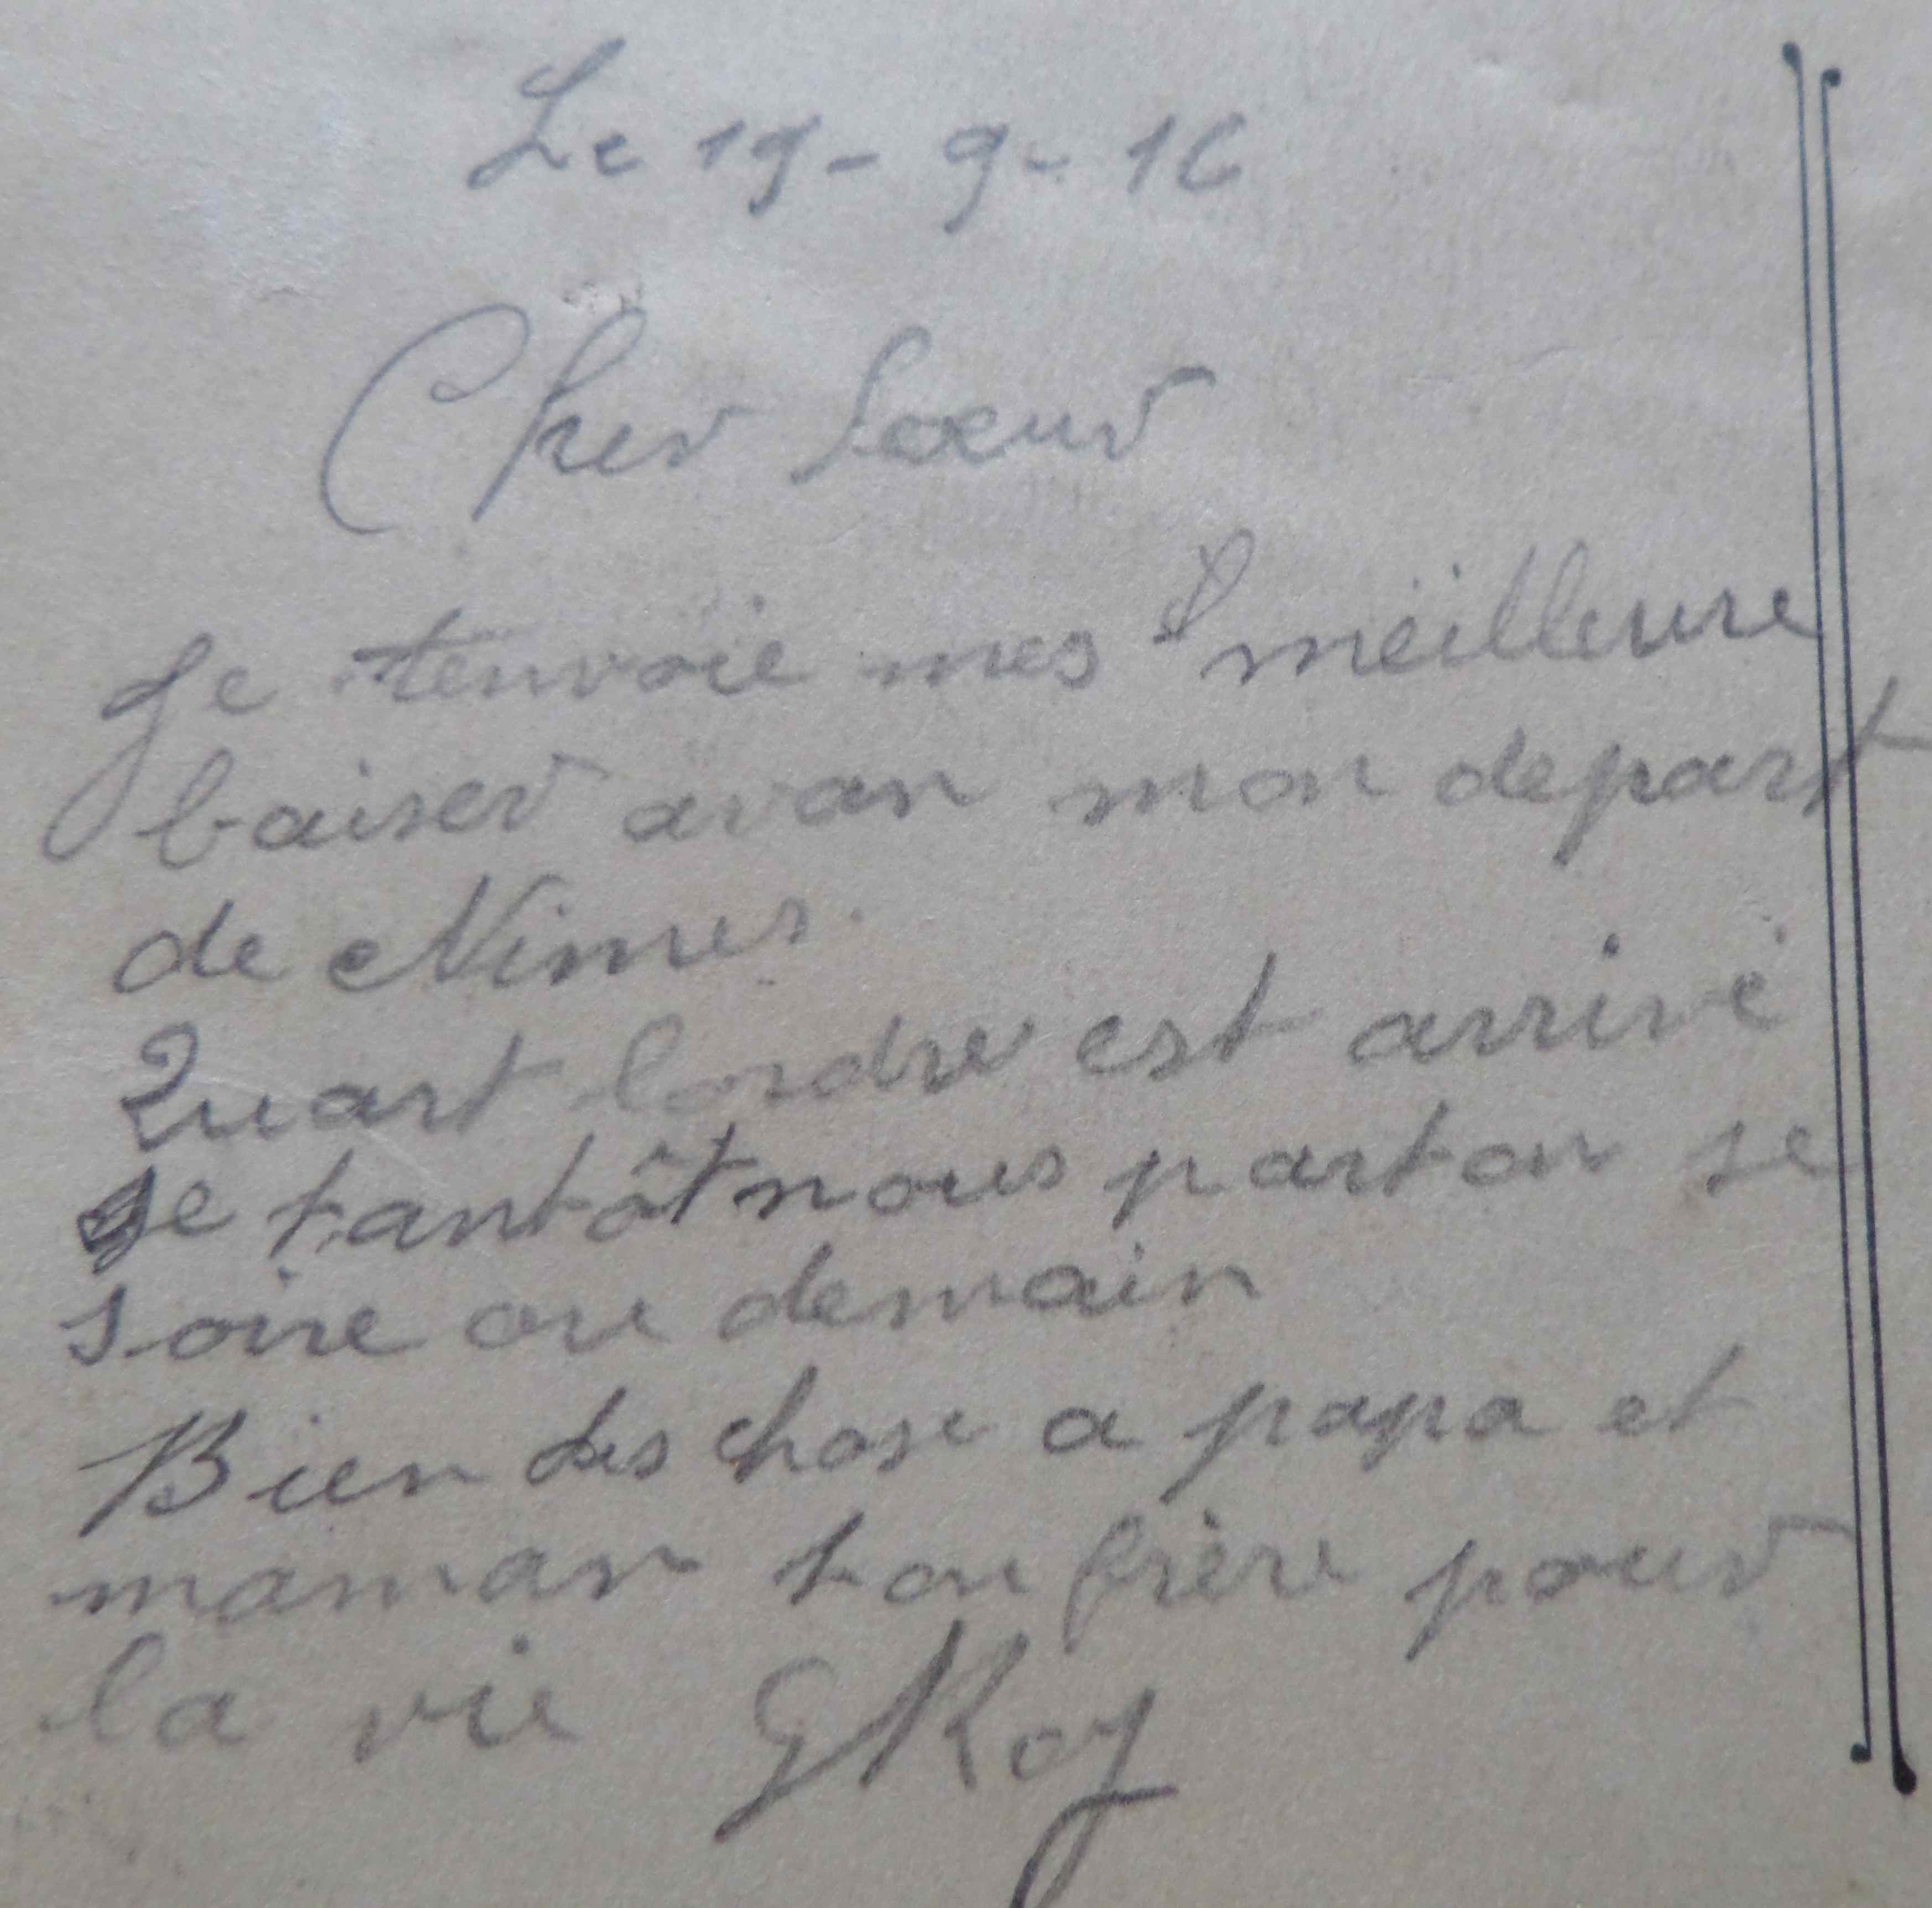 Le 19-9-16
Cher Soeur
Je tenvoie mes meilleure
baiser avan mon depart
de Nimes.
Quart lordre est arrivé
se tantôt nous parton se
soire ou demain
Bien des chose a papa et
maman ton frère pour
la vie GRoy